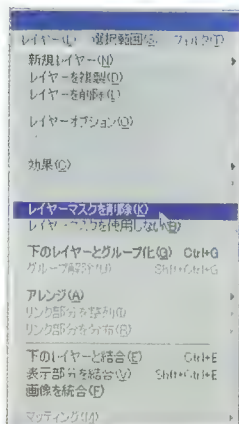 レイヤー(L) 選択範囲(S) フィルタ(T)
新規レイヤー(N)
レイヤーを複製(D)
レイヤーを削除(L)
レイヤーオプション(O)
効果(C)
レイヤーマスクを削除(K)
レイヤーマスクを使用しない(B)
下のレイヤーとグループ化(G) Ctrl+G
グループ解除(U) Shift+Ctrl+G
アレンジ(A)
リンク部分を整列(I)
リンク部分を分布(B)
下のレイヤーと結合(E) Ctrl+E
表示部分を結合(V) Shift+Ctrl+E
画像を統合(F)
マッティング(M)